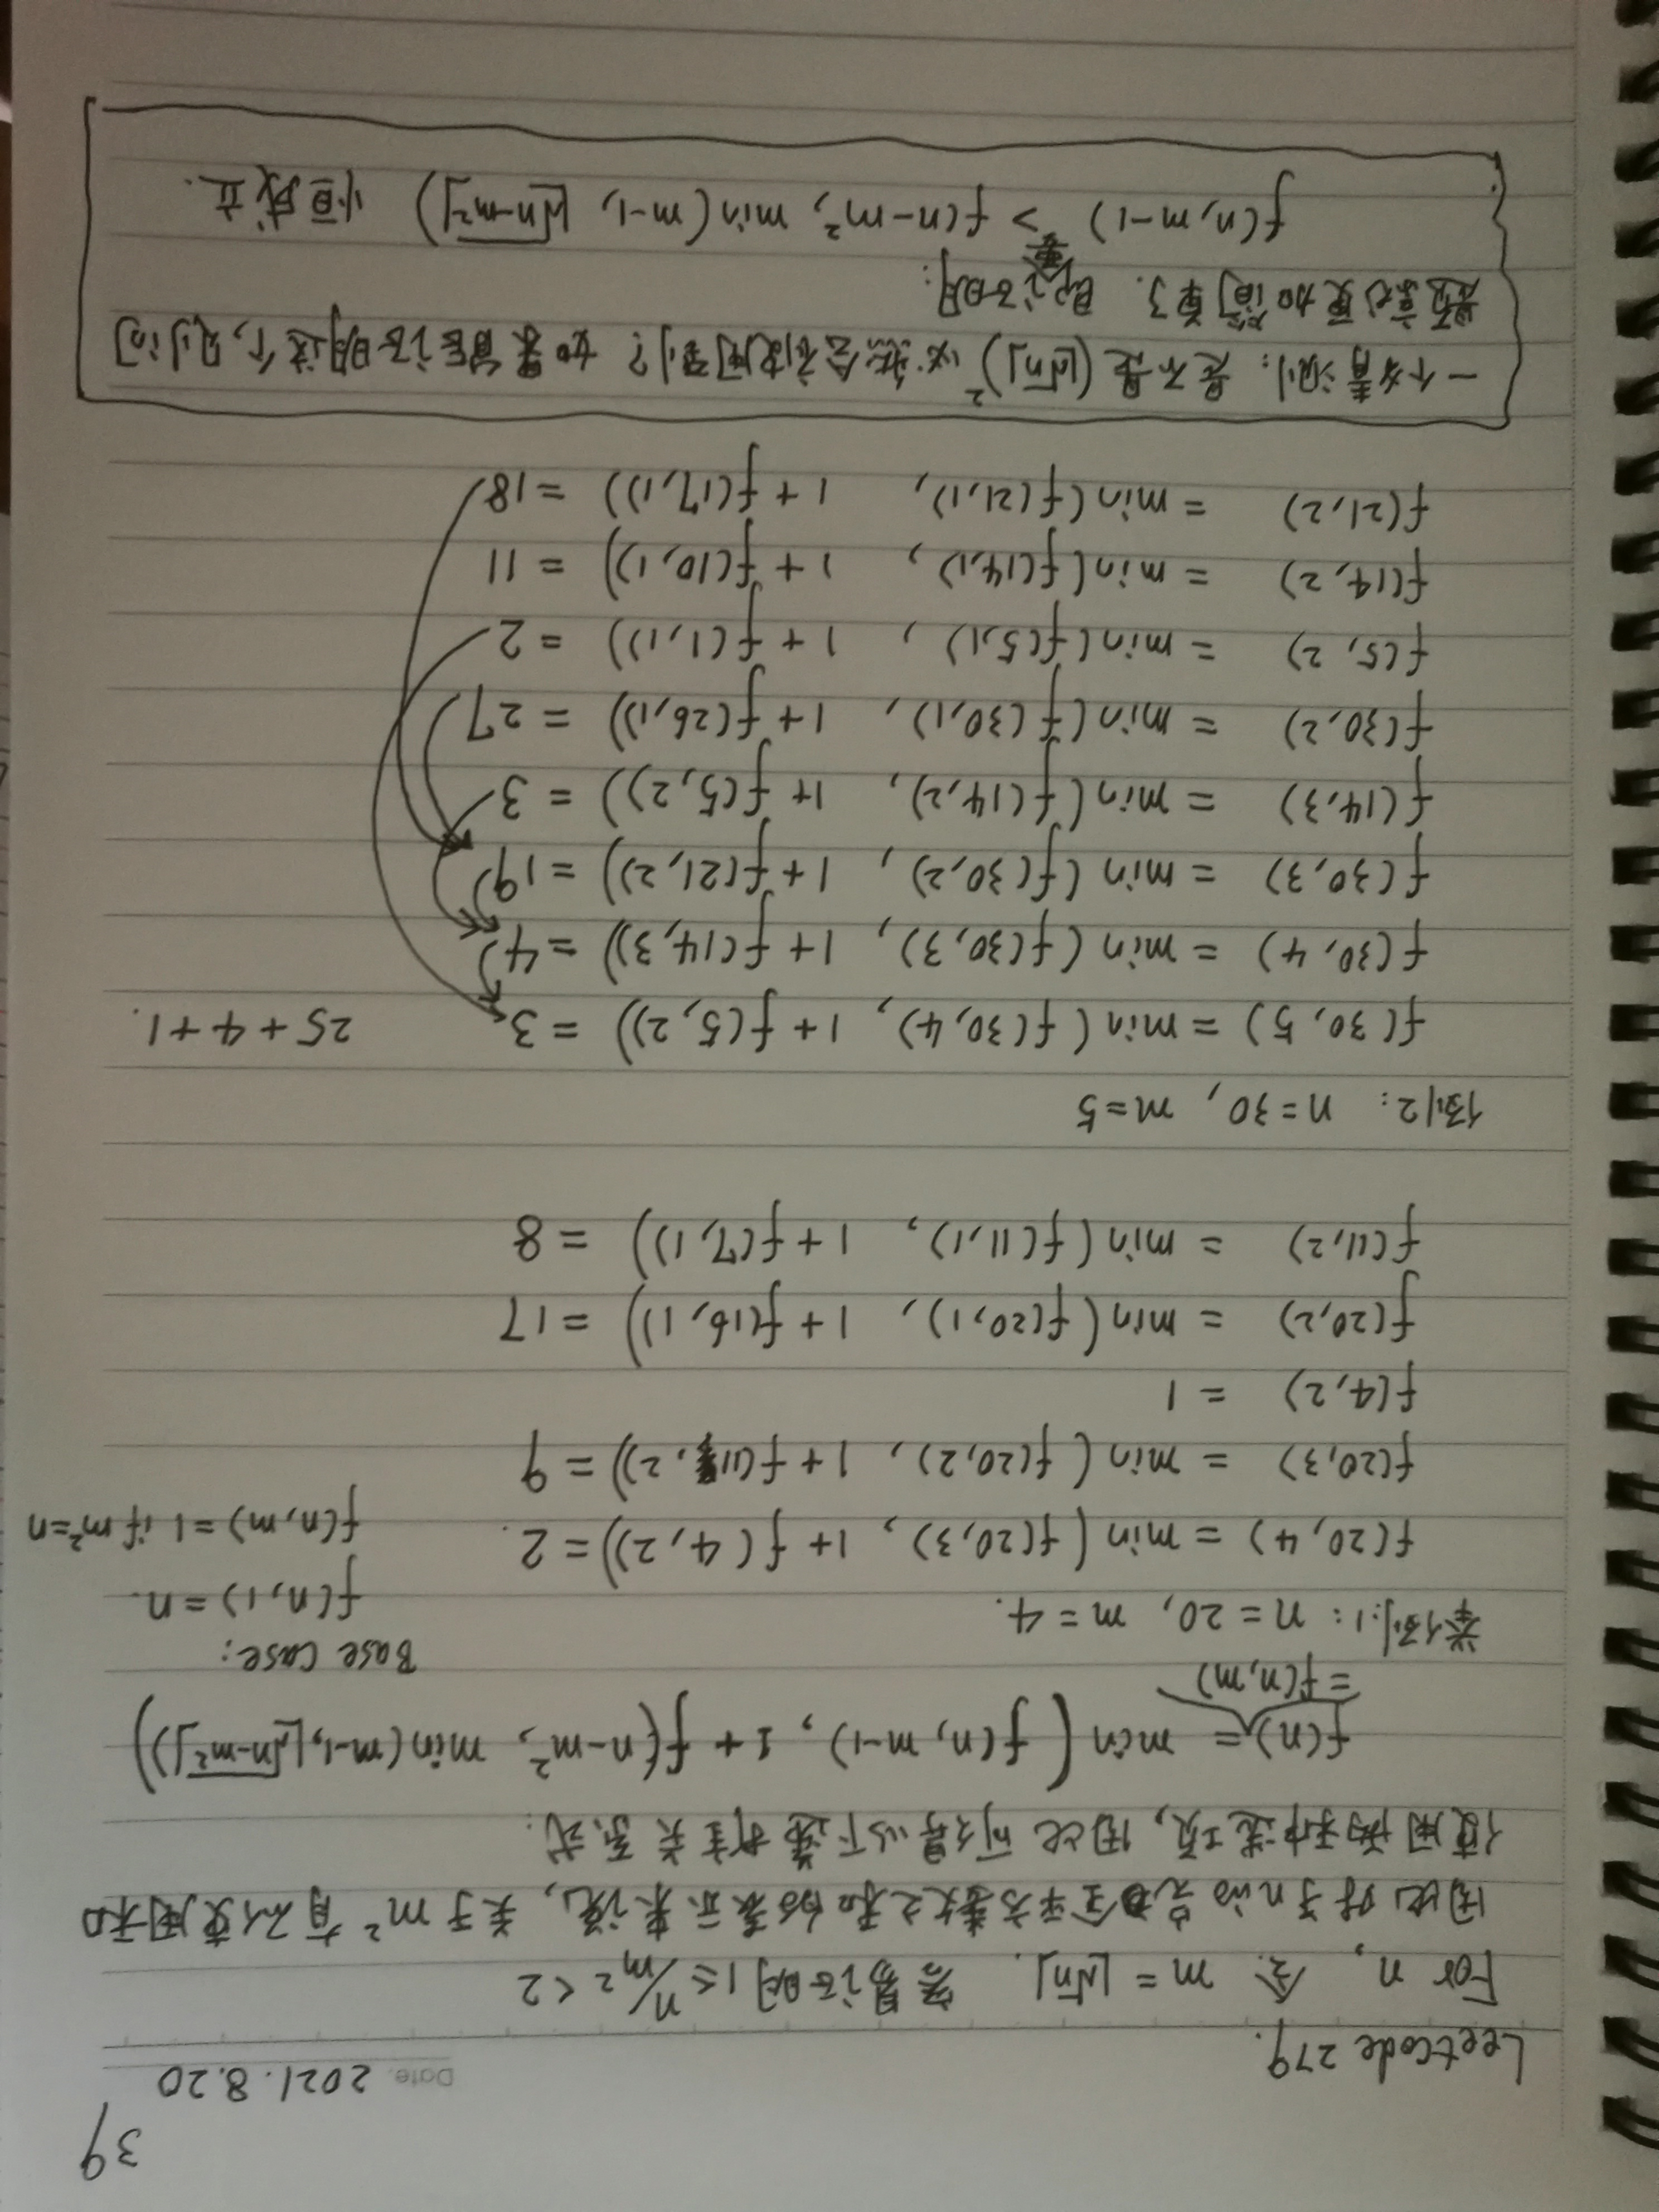 39
Date. 2021.8.20
Leetcode 279.
For n, 令 m = ⌊√n⌋. 容易证明 1 ≤ n/m² < 2
因此对于n的完全平方数之和的表示来说, 关于 m² 有不使用和
使用两种选项, 因此可得以下递推关系式:
f(n) = min( f(n, m-1), 1 + f(n-m², min(m-1, ⌊√n-m²⌋)))
= f(n,m)
Base case:
举例:1: n = 20, m = 4.
f(n,1) = n.
f(20,4) = min( f(20,3), 1+ f(4,2)) = 2.
f(n,m) = 1 if m²=n
f(20,3) = min( f(20,2), 1 + f(11, 2)) = 9
f(4,2) = 1
f(20,2) = min( f(20,1), 1 + f(16,1)) = 17
f(11,2) = min( f(11,1), 1 + f(7,1)) = 8
例2: n = 30, m = 5
f(30,5) = min( f(30,4), 1 + f(5,2)) = 3 25 + 4 + 1.
f(30,4) = min( f(30,3), 1 + f(14,3)) = 4
f(30,3) = min( f(30,2), 1 + f(21,2)) = 19
f(14,3) = min( f(14,2), 1+ f(5,2)) = 3
f(30,2) = min( f(30,1), 1 + f(26,1)) = 27
f(5,2) = min( f(5,1), 1 + f(1,1)) = 2
f(14,2) = min( f(14,1), 1 + f(10,1)) = 11
f(21,2) = min( f(21,1), 1 + f(17,1)) = 18
一个猜测: 是不是 (⌊√n⌋)² 必然会被用到? 如果能证明这个, 则问
题就更加简单了. 即要证明:
f(n, m-1) > f(n-m², min(m-1, ⌊√n-m²⌋) 恒成立.